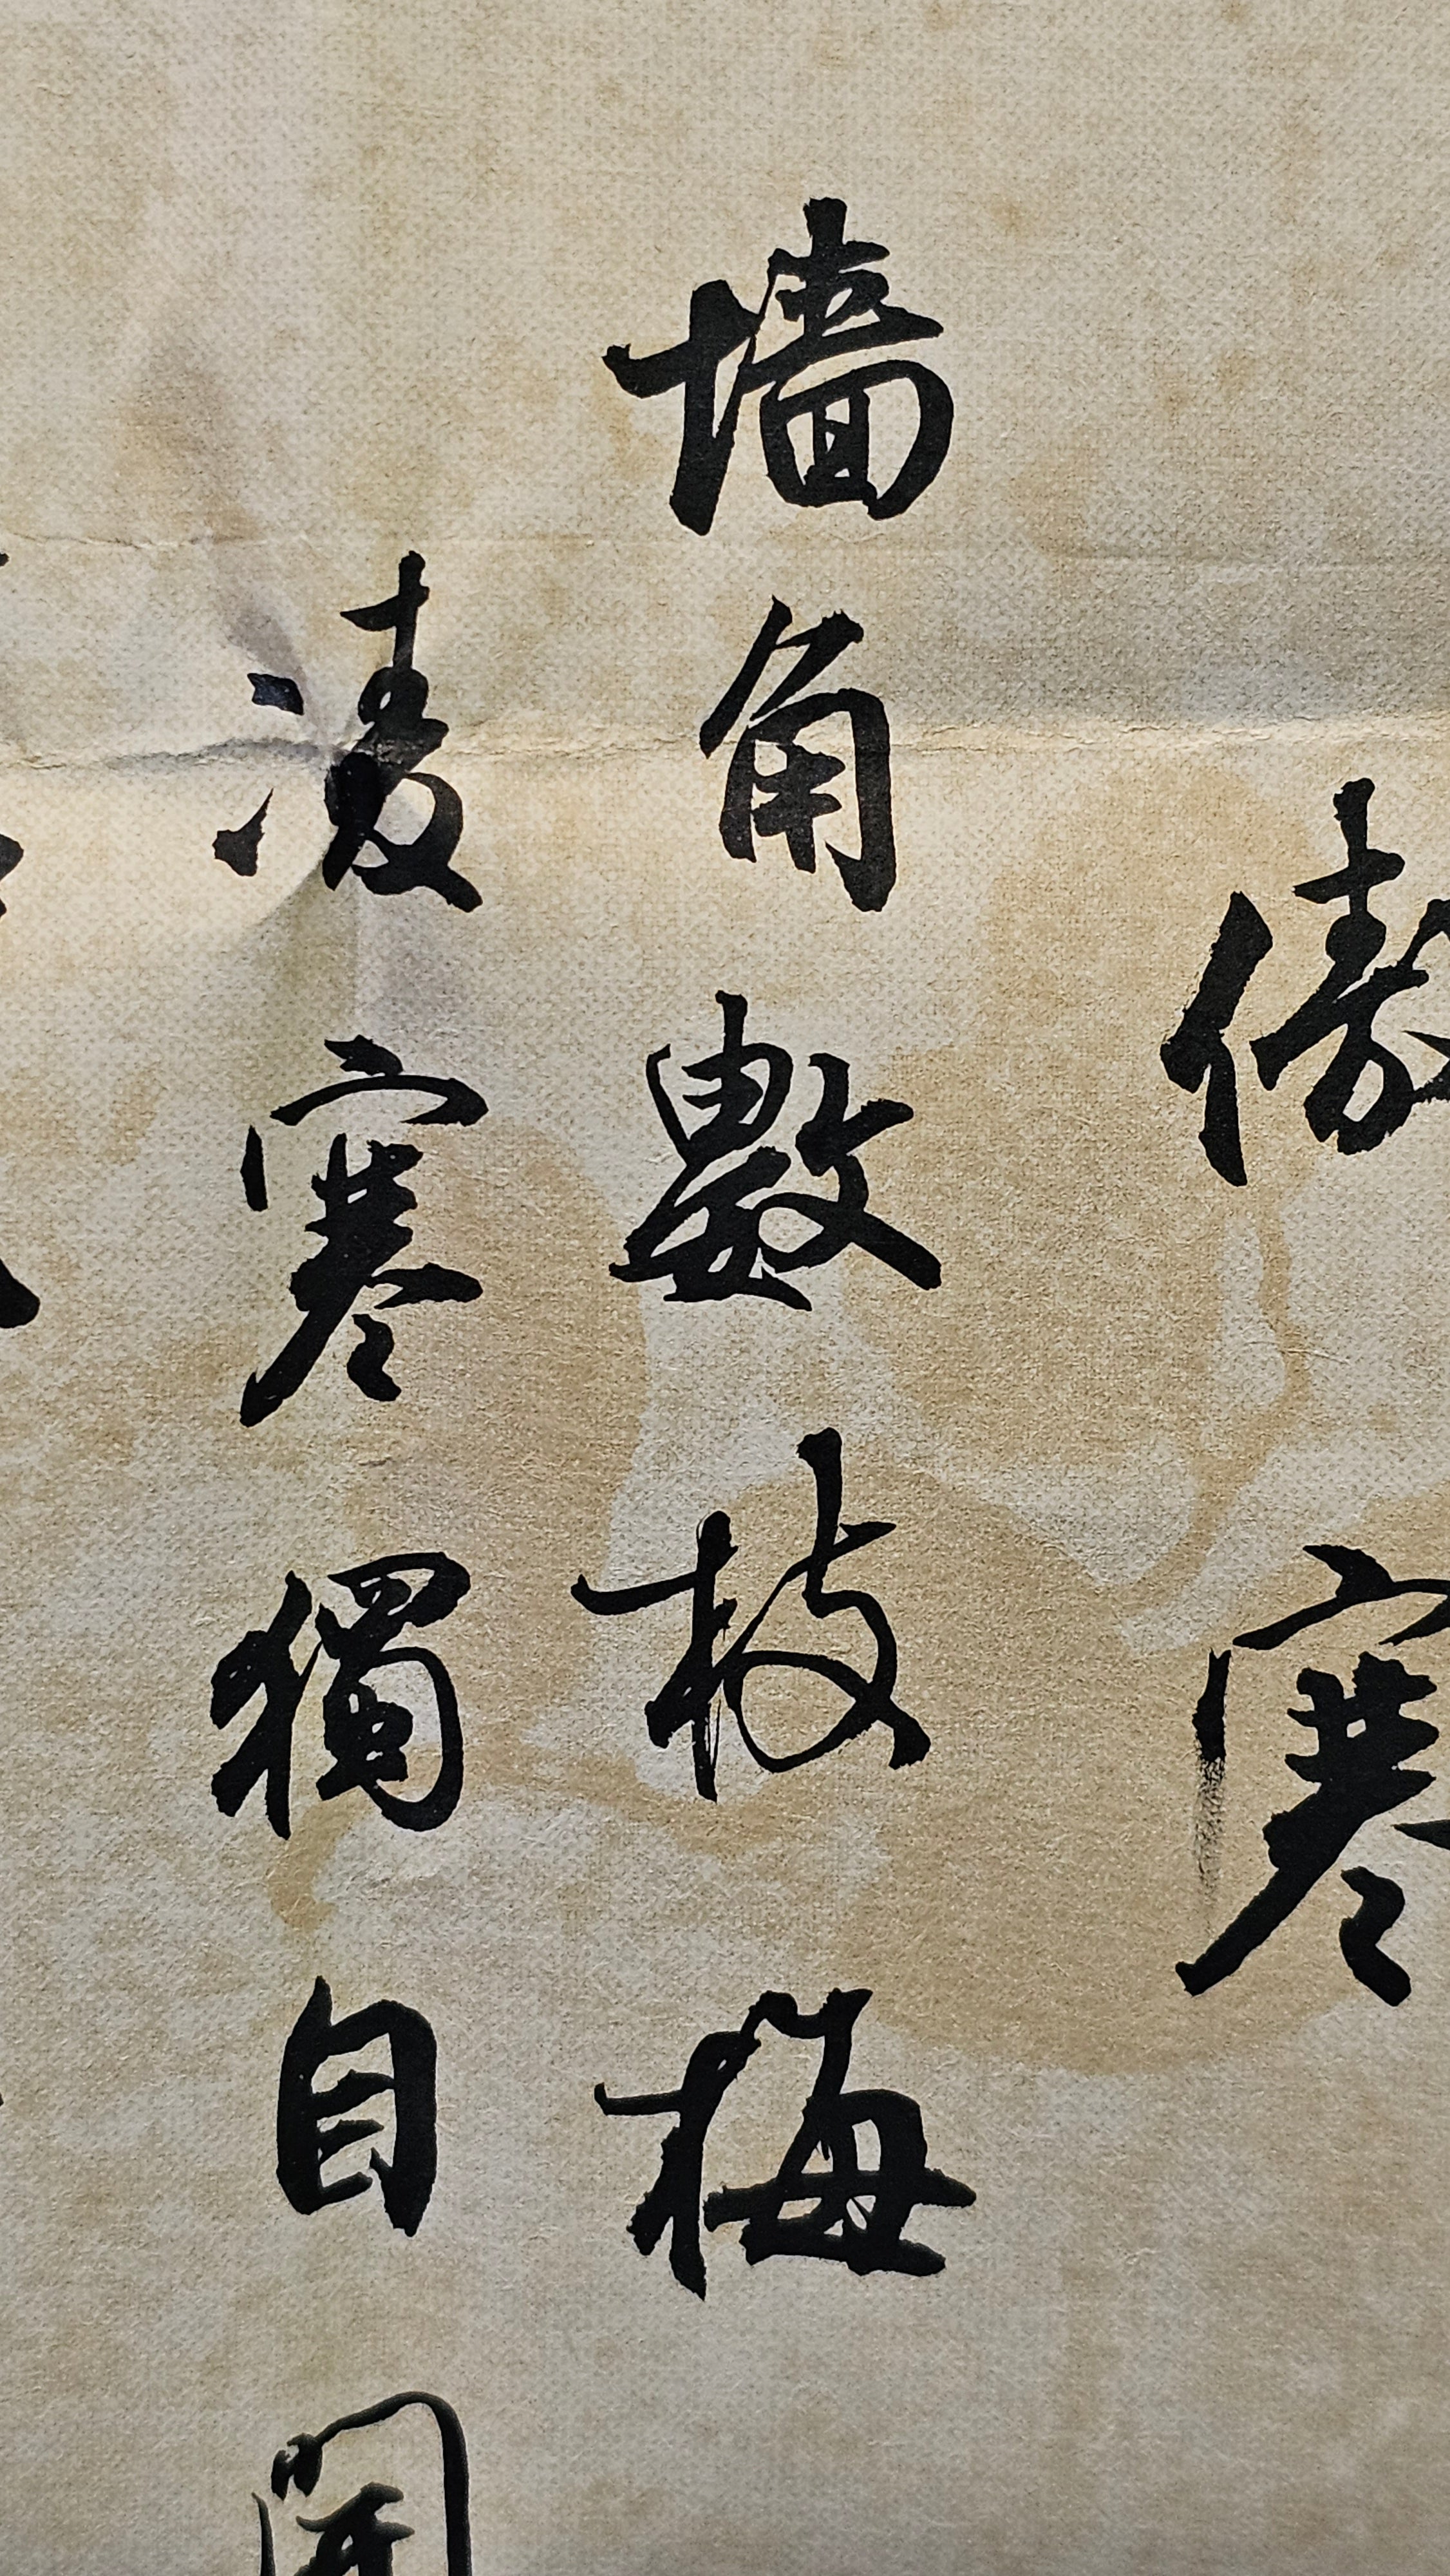 傲寒
墙角數枝梅
凌寒獨自開